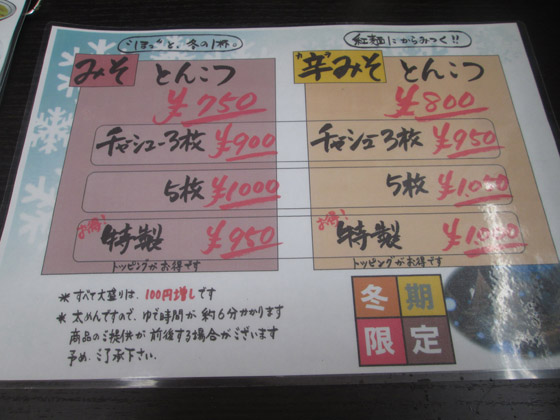 "ほっ"と、冬の1杯。
紅麺にからみつく!!
みそ とんこつ
¥750
チャーシュー3枚 ¥900
5枚 ¥1000
お得! 特製 ¥950
トッピングがお得です
"辛"みそ とんこつ
¥800
チャーシュー3枚 ¥950
5枚
お得! 特製
トッピングがお得です
＊すべて大盛りは、100円増しです
＊太めんですので、ゆで時間が約6分かかります
商品のご提供が前後する場合がございます
予め、ご了承下さい。
冬期
限定